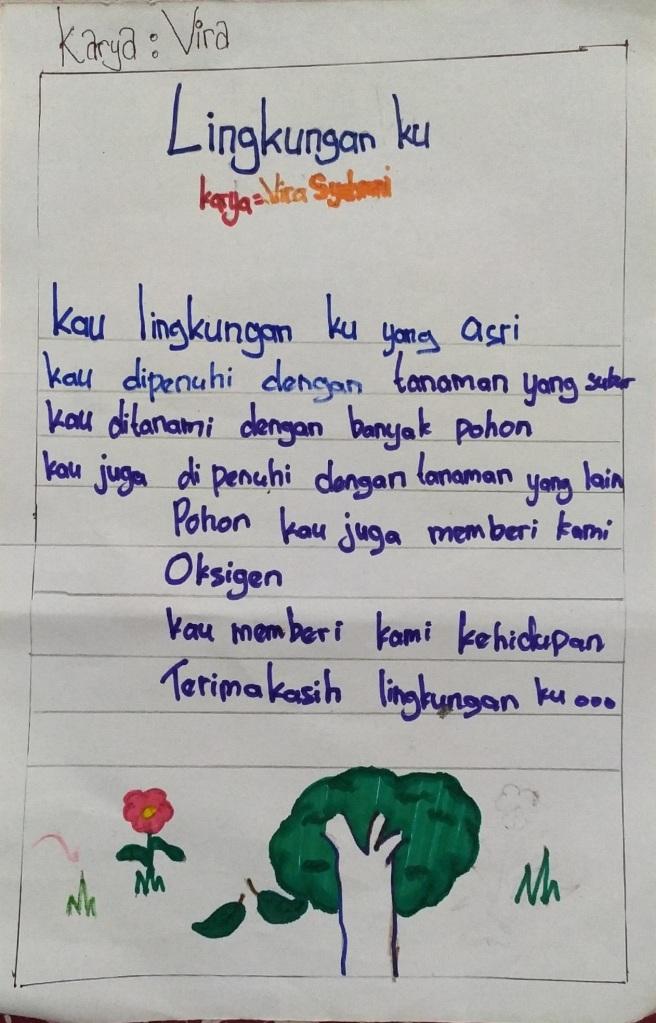 Karya : Vira
Lingkungan ku
karya = Vira Syahrani
kau lingkungan ku yang asri
kau dipenuhi dengan tanaman yang subur
kau ditanami dengan banyak pohon
kau juga di penuhi dengan tanaman yang lain
Pohon kau juga memberi kami
Oksigen
kau memberi kami kehidupan
Terimakasih lingkungan ku...